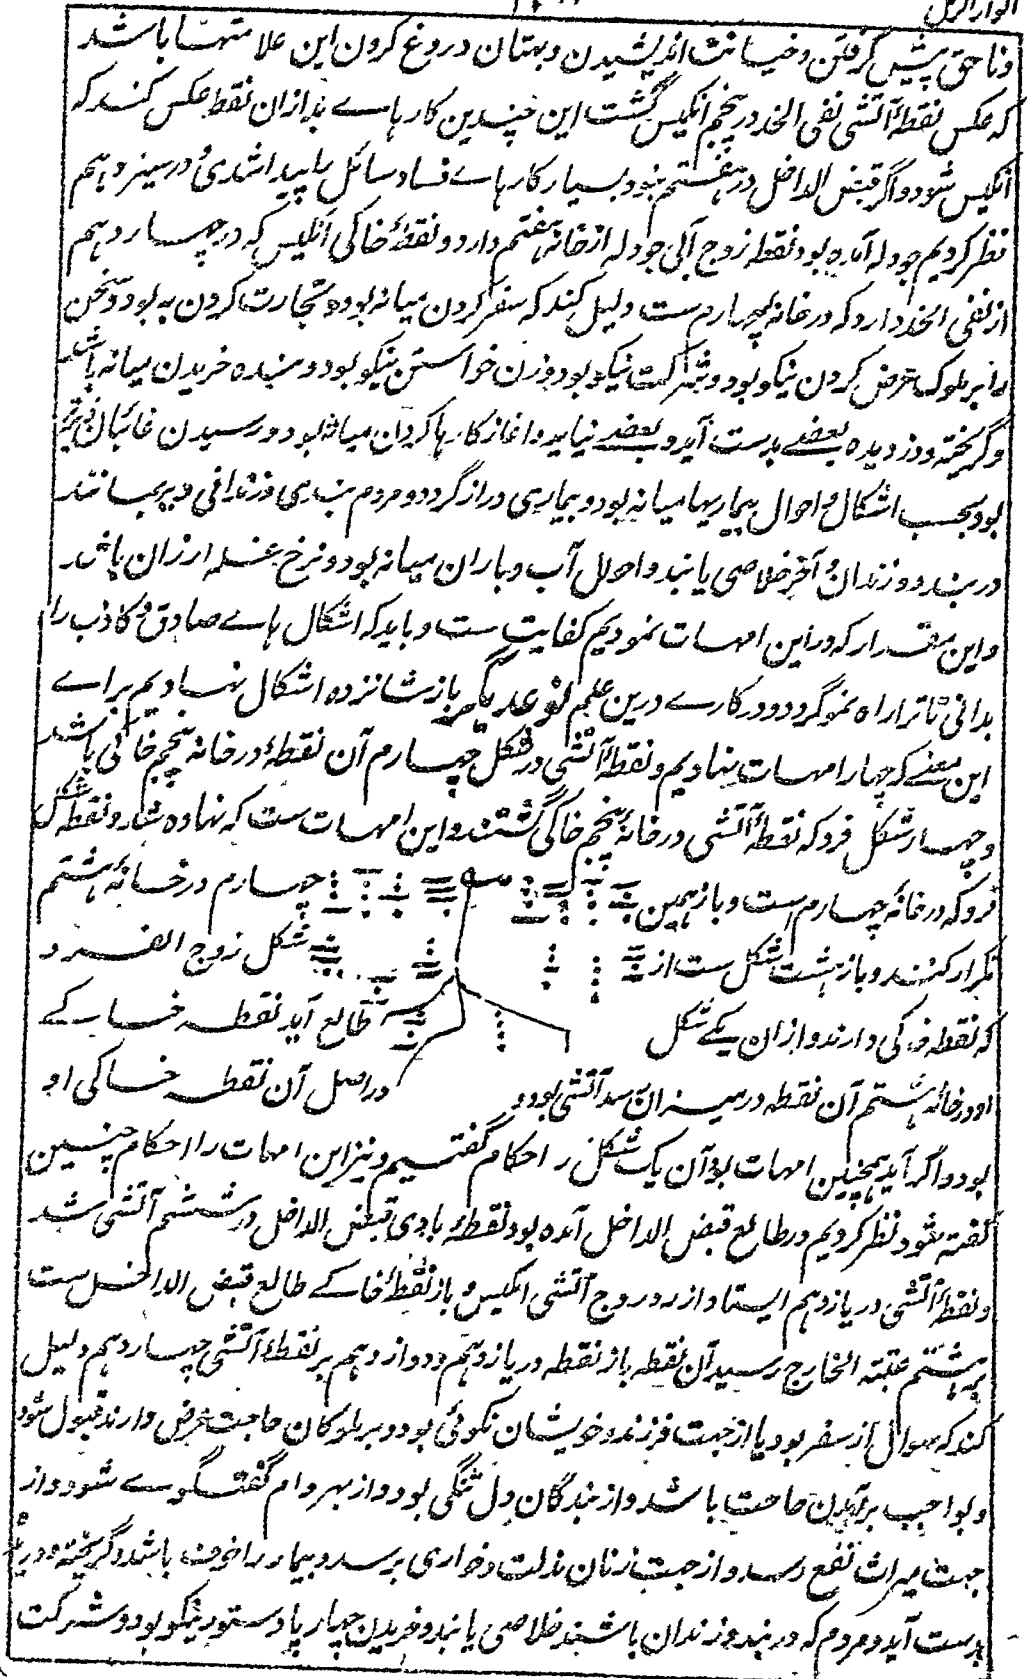 انوار الرمل
وناحق پیش گرفتن وخیانت اندیشیدن وبهتان ودروغ کردن این علامتها باشد
که عکس نقطهٔ آتشی نقی الخد در پنجم انکیس گشت این چندین کارہاے بد ازان نقطه عکس کند که
انکیس شود واگر قبض الداخل در هفتم نبود بسیار کارہاے فساد سائل را پیدا شدی ودر سیزدہم
نظر کردیم جودله آمده بود نقطه زوج آبی جودله از خانهٔ هفتم دارد ونقطهٔ خاکی انکیس که در چهاردهم
از نقی الخد دارد که در خانهٔ چهارم ست دلیل کند که سفر کردن میانه بود وتجارت کردن به بود وسخن
را بر ملوک عرض کردن نیکو بود وشرکت نیکو بود وزن خواستن نیکو بود وبنده خریدن میانه باشد
وگریخته ودزدیده بعضے بدست آید وبعضے نیاید واغاز کارہا کردن میانه بود ورسیدن غائبان
بود بحسب اشکال واحوال بیماریها میانه بود وبیماری دراز گردد ومردم بندی وزندانی دیر بمانند
در بند وزندان وآخر خلاصی یابند واحوال آب وباران میانه بود ونرخ غله ارزان باشد
واین مقدار که در این امہات نمودیم کفایت ست وباید که اشکال ہاے صادق وکاذب را
بدانی تا ترا راه نمو گردد ودر کارے درین علم نوعدیگر باز شانزده اشکال نہادیم براے
این معنے که چہار امہات نہادیم ونقطهٔ آتشی در شکل چہارم آن نقطهٔ در خانهٔ پنجم خاکی باشد
وچہار شکل فرو که نقطهٔ آتشی در خانهٔ پنجم خاکی گشتند واین امہات ست که نہاده شد ونقطه شکل
فرو که در خانهٔ چہارم است وباز ہمین چہارم در خانهٔ ہشتم
تکرار کنند وباز ہشت شکل ست از شکل زوج الفرد و
که نقطه خاکی دارند وازان یکے شکل طالع آید نقطه خاکے
او در خانهٔ ہشتم آن نقطه در میزان سه آتشی بود و در اصل آن نقطه خاکی او
بود واگر آید ہمچنین امہات بود آن یک شکل را احکام گفتیم ونیز این امہات را احکام چنین
گفته شود نظر کردیم در طالع قبض الداخل آمده بود نقطهٔ بادی قبض الداخل در ششم آتشی شد
ونقطهٔ آتشی در یازدہم ایستاد از رود روج آتشی انکیس وباز نقطهٔ خاکے طالع قبض الداخل ست
بر ہشتم عتبة الخارج رسید آن نقطه باز نقطه در یازدہم ودوازدہم بر نقطهٔ آتشی چہاردہم دلیل
کند که سوال از سفر بود یا از جهت فرزند وخویشان نکوئی بود وبر ملوکان حاجت عرض دارند قبول شود
وبواجب برآمدن حاجت باشد واز بندگان دل تنگی بود واز بهر وام گفتگوے شود واز
جهت میراث نفع رسد واز جهت زنان مذلت وخواری برسد وبیمار را خوف باشد وگریخته
بدست آید ومردم که در بند وزندان باشند خلاصی یابند وخریدن چهارپا وستور نیکو بود وشرکت